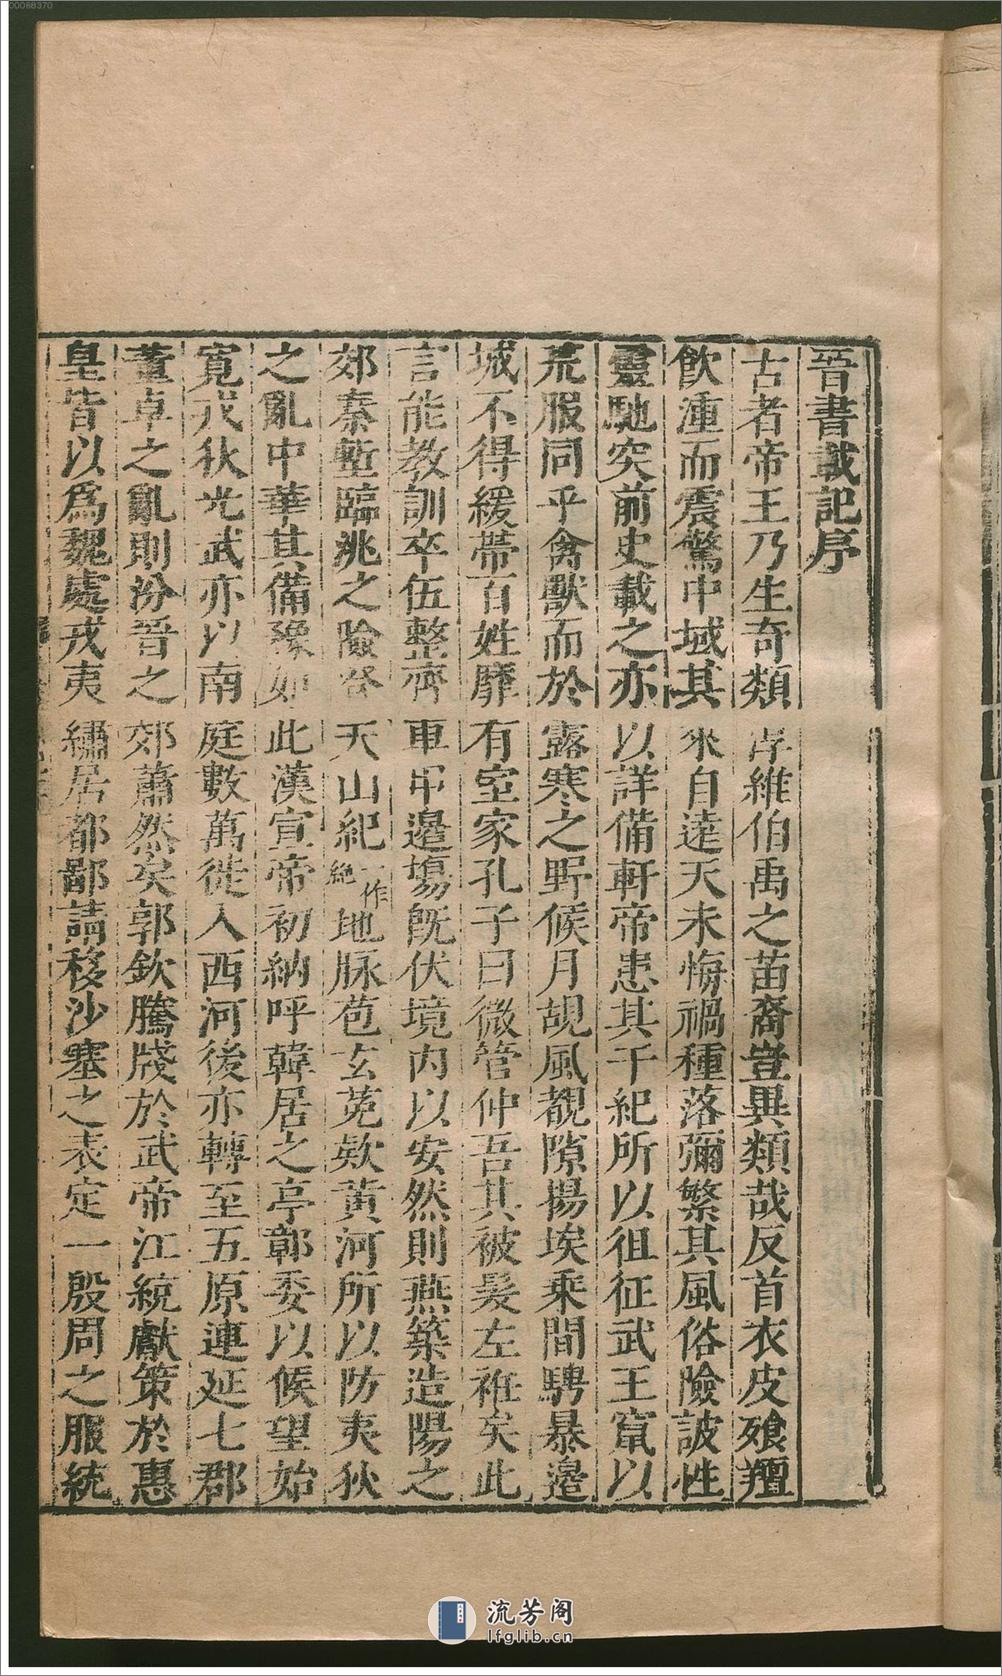 00088370
晉書載記序
古者帝王乃生奇類淳維伯禹之苗裔豈異類哉反首衣皮飡羶
飲湩而震驚中域其來自遠天未悔禍種落彌繁其風俗險詖性
靈馳突前史載之亦以詳備軒帝患其干紀所以徂征武王竄以
荒服同乎禽獸而於露寒之野候月覘風覩隙揚埃乘間騁暴邊
城不得緩帶百姓靡有室家孔子曰微管仲吾其被髮左袵矣此
言能教訓卒伍整齊車甲邊塲旣伏境內以安然則燕築造陽之
郊秦塹臨洮之險登天山紀一作絶地脉苞玄菟欵黃河所以防夷狄
之亂中華其備豫如此漢宣帝初納呼韓居之亭鄣委以候望始
寬戎狄光武亦以南庭數萬徙入西河後亦轉至五原連延七郡
董卓之亂則汾晉之郊蕭然矣郭欽騰牋於武帝江統獻策於惠
皇皆以爲魏處戎夷繡居都鄙請移沙塞之表定一殷周之服統
流芳阁
lfglib.cn